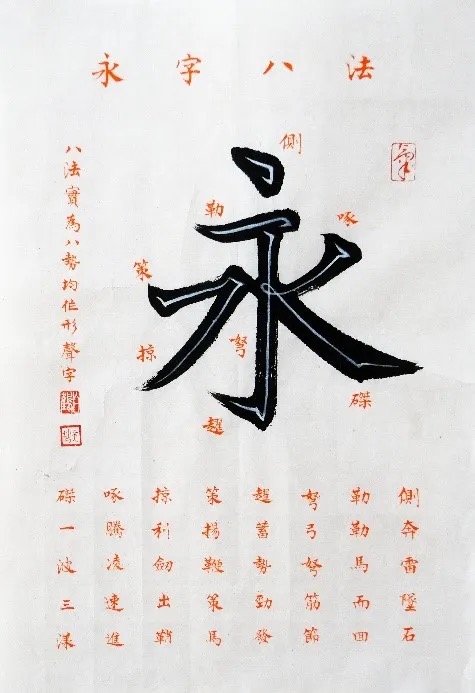 永字八法
側
勒
啄
策
弩
掠
磔
趯
側奔雷墜石
勒勒馬而回
弩弓弩筋節
趯蓄勢勁發
策揚鞭策馬
掠利劍出鞘
啄騰凌速進
磔一波三漾
永
八法實為八勢均作形聲字